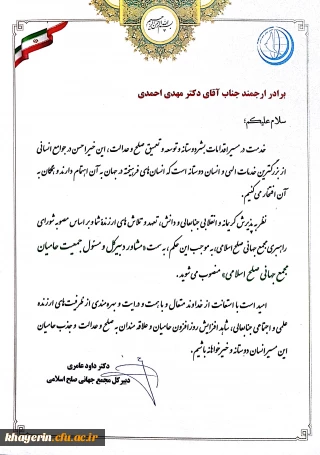 برادر ارجمند جناب آقای دکتر مهدی احمدی
سلام علیکم؛
خدمت در مسیر اقدامات بشردوستانه و توسعه و تعمیق صلح و عدالت، این ضمیر احسن در جوامع انسانی
از بزرگترین خدمات الهی و انسان دوستانه است که انسان‌های فرهیخته در جهان به آن اهتمام دارند و همگان به
آن افتخار می‌کنیم.
نظر به پذیرش کریمانه و انقلابی جنابعالی و دانش، تعهد و تلاش های ارزنده شما و بر اساس مصوبه شورای
راهبری مجمع جهانی صلح اسلامی؛ به موجب این حکم، به سمت «مشاور دبیرکل و مسئول جمعیت حامیان
مجمع جهانی صلح اسلامی» منصوب می‌شوید.
امید است با استعانت از خداوند متعال و با همت و درایت و بهره مندی از ظرفیت‌های ارزنده
علمی و اجتماعی جنابعالی، شاهد افزایش روزافزون حامیان و علاقه مندان به صلح و عدالت و جذب حامیان
این مسیر انسان دوستانه و خیرخواهانه باشیم.
دکتر داود عامری
دبیرکل مجمع جهانی صلح اسلامی
khayerin.cfu.ac.ir